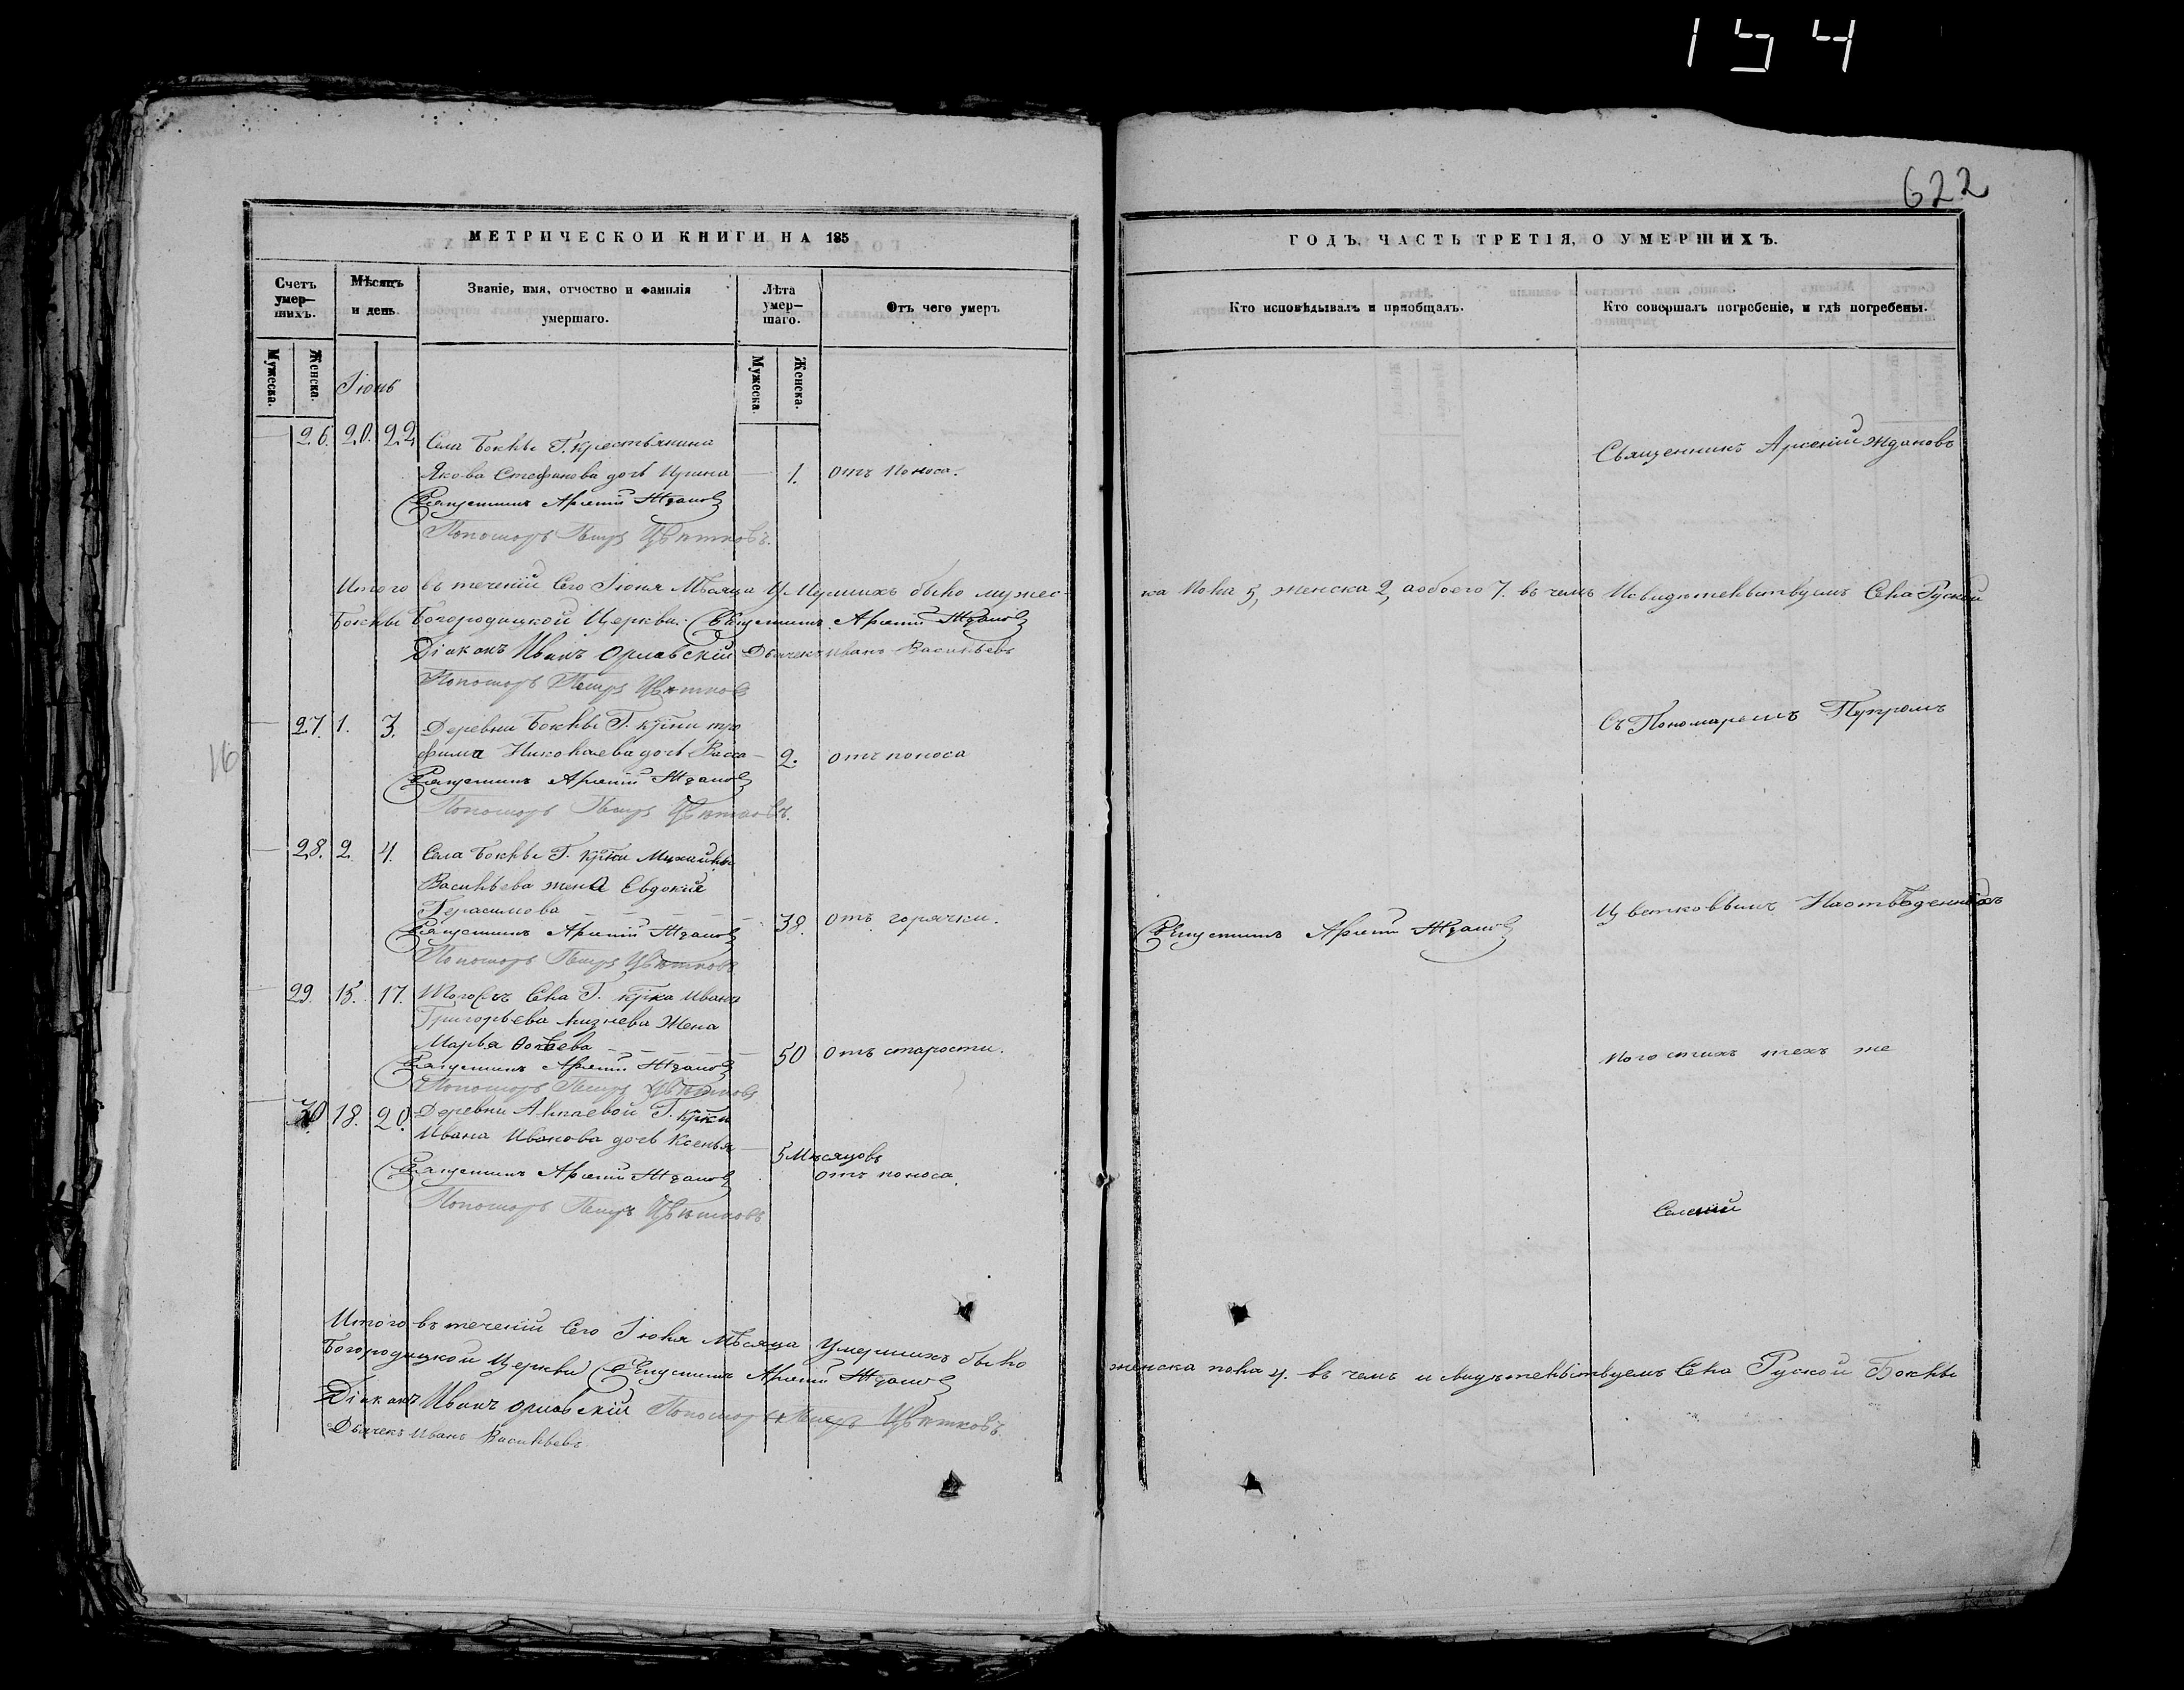 154
622
МЕТРИЧЕСКОЙ КНИГИ НА 185
Счетъ умер-шихъ.
Мужеска.
Женска.
Мѣсяцъ и день.
Званіе, имя, отчество и фамилія умершаго.
Лѣта умер-шаго.
Мужеска.
Женска.
Отъ чего умеръ
ГОДЪ, ЧАСТЬ ТРЕТІЯ, О УМЕРШИХЪ.
Кто исповѣдывалъ и пріобщалъ.
Кто совершалъ погребеніе, и гдѣ погребены.
Іюнь
26. 20. 22 Села Боклы Г. крестьянина
Якова Стефанова дочь Ирина 1. отъ поноса.
Священникъ Арсеній Ждановъ
Пономарь Петръ Цвѣтковъ.
Священникъ Арсеній Ждановъ
Итого въ теченіи Сего Іюня Мѣсяца Умершихъ было мужес-
ка пола 5, женска 2, а обоего 7. въ чемъ И свидѣтельствуемъ Села Руской
Боклы Богородицкой Церкви: Священникъ Арсеній Ждановъ
Діаконъ Иванъ Орловскій Дьячекъ Иванъ Васильевъ
Пономарь Петръ Цвѣтковъ
16
27. 1. 3. Деревни Боклы Г. кр͠ни Тро
фима Николаева дочь Васса 2. отъ поноса
Священникъ Арсеній Ждановъ
Пономарь Петръ Цвѣтковъ.
Съ Пономаремъ Петромъ
28. 2 4. Села Боклы Г. кр͠на Михайлы
Васильева жена Евдокия
Герасимова 38. отъ горячки.
Священникъ Арсеній Ждановъ
Пономарь Петръ Цвѣтковъ
Священникъ Арсеній Ждановъ
Цветковымъ На отведенныхъ
29. 15. 17. Тогожъ Села Г. кр͠на Ивана
Григорьева жена
Марья 50 отъ старости.
Священникъ Арсеній Ждановъ
Пономарь Петръ Цвѣтковъ
погостахъ техъ же
30 18. 20. Деревни Алпаевой Г. кр͠на
Ивана Иванова дочь Ксенья 5 Мѣсяцовъ
отъ поноса.
Священникъ Арсеній Ждановъ
Пономарь Петръ Цвѣтковъ
Селеній
Итого въ теченіи Сего Іюля Мѣсяца Умершихъ было
женска пола 4. въ чемъ и свидѣтельствуемъ Села Руской Боклы
Богородицкой Церкви Священникъ Арсеній Ждановъ
Діаконъ Иванъ Орловскій Пономарь Петръ Цвѣтковъ.
Дьячекъ Иванъ Васильевъ